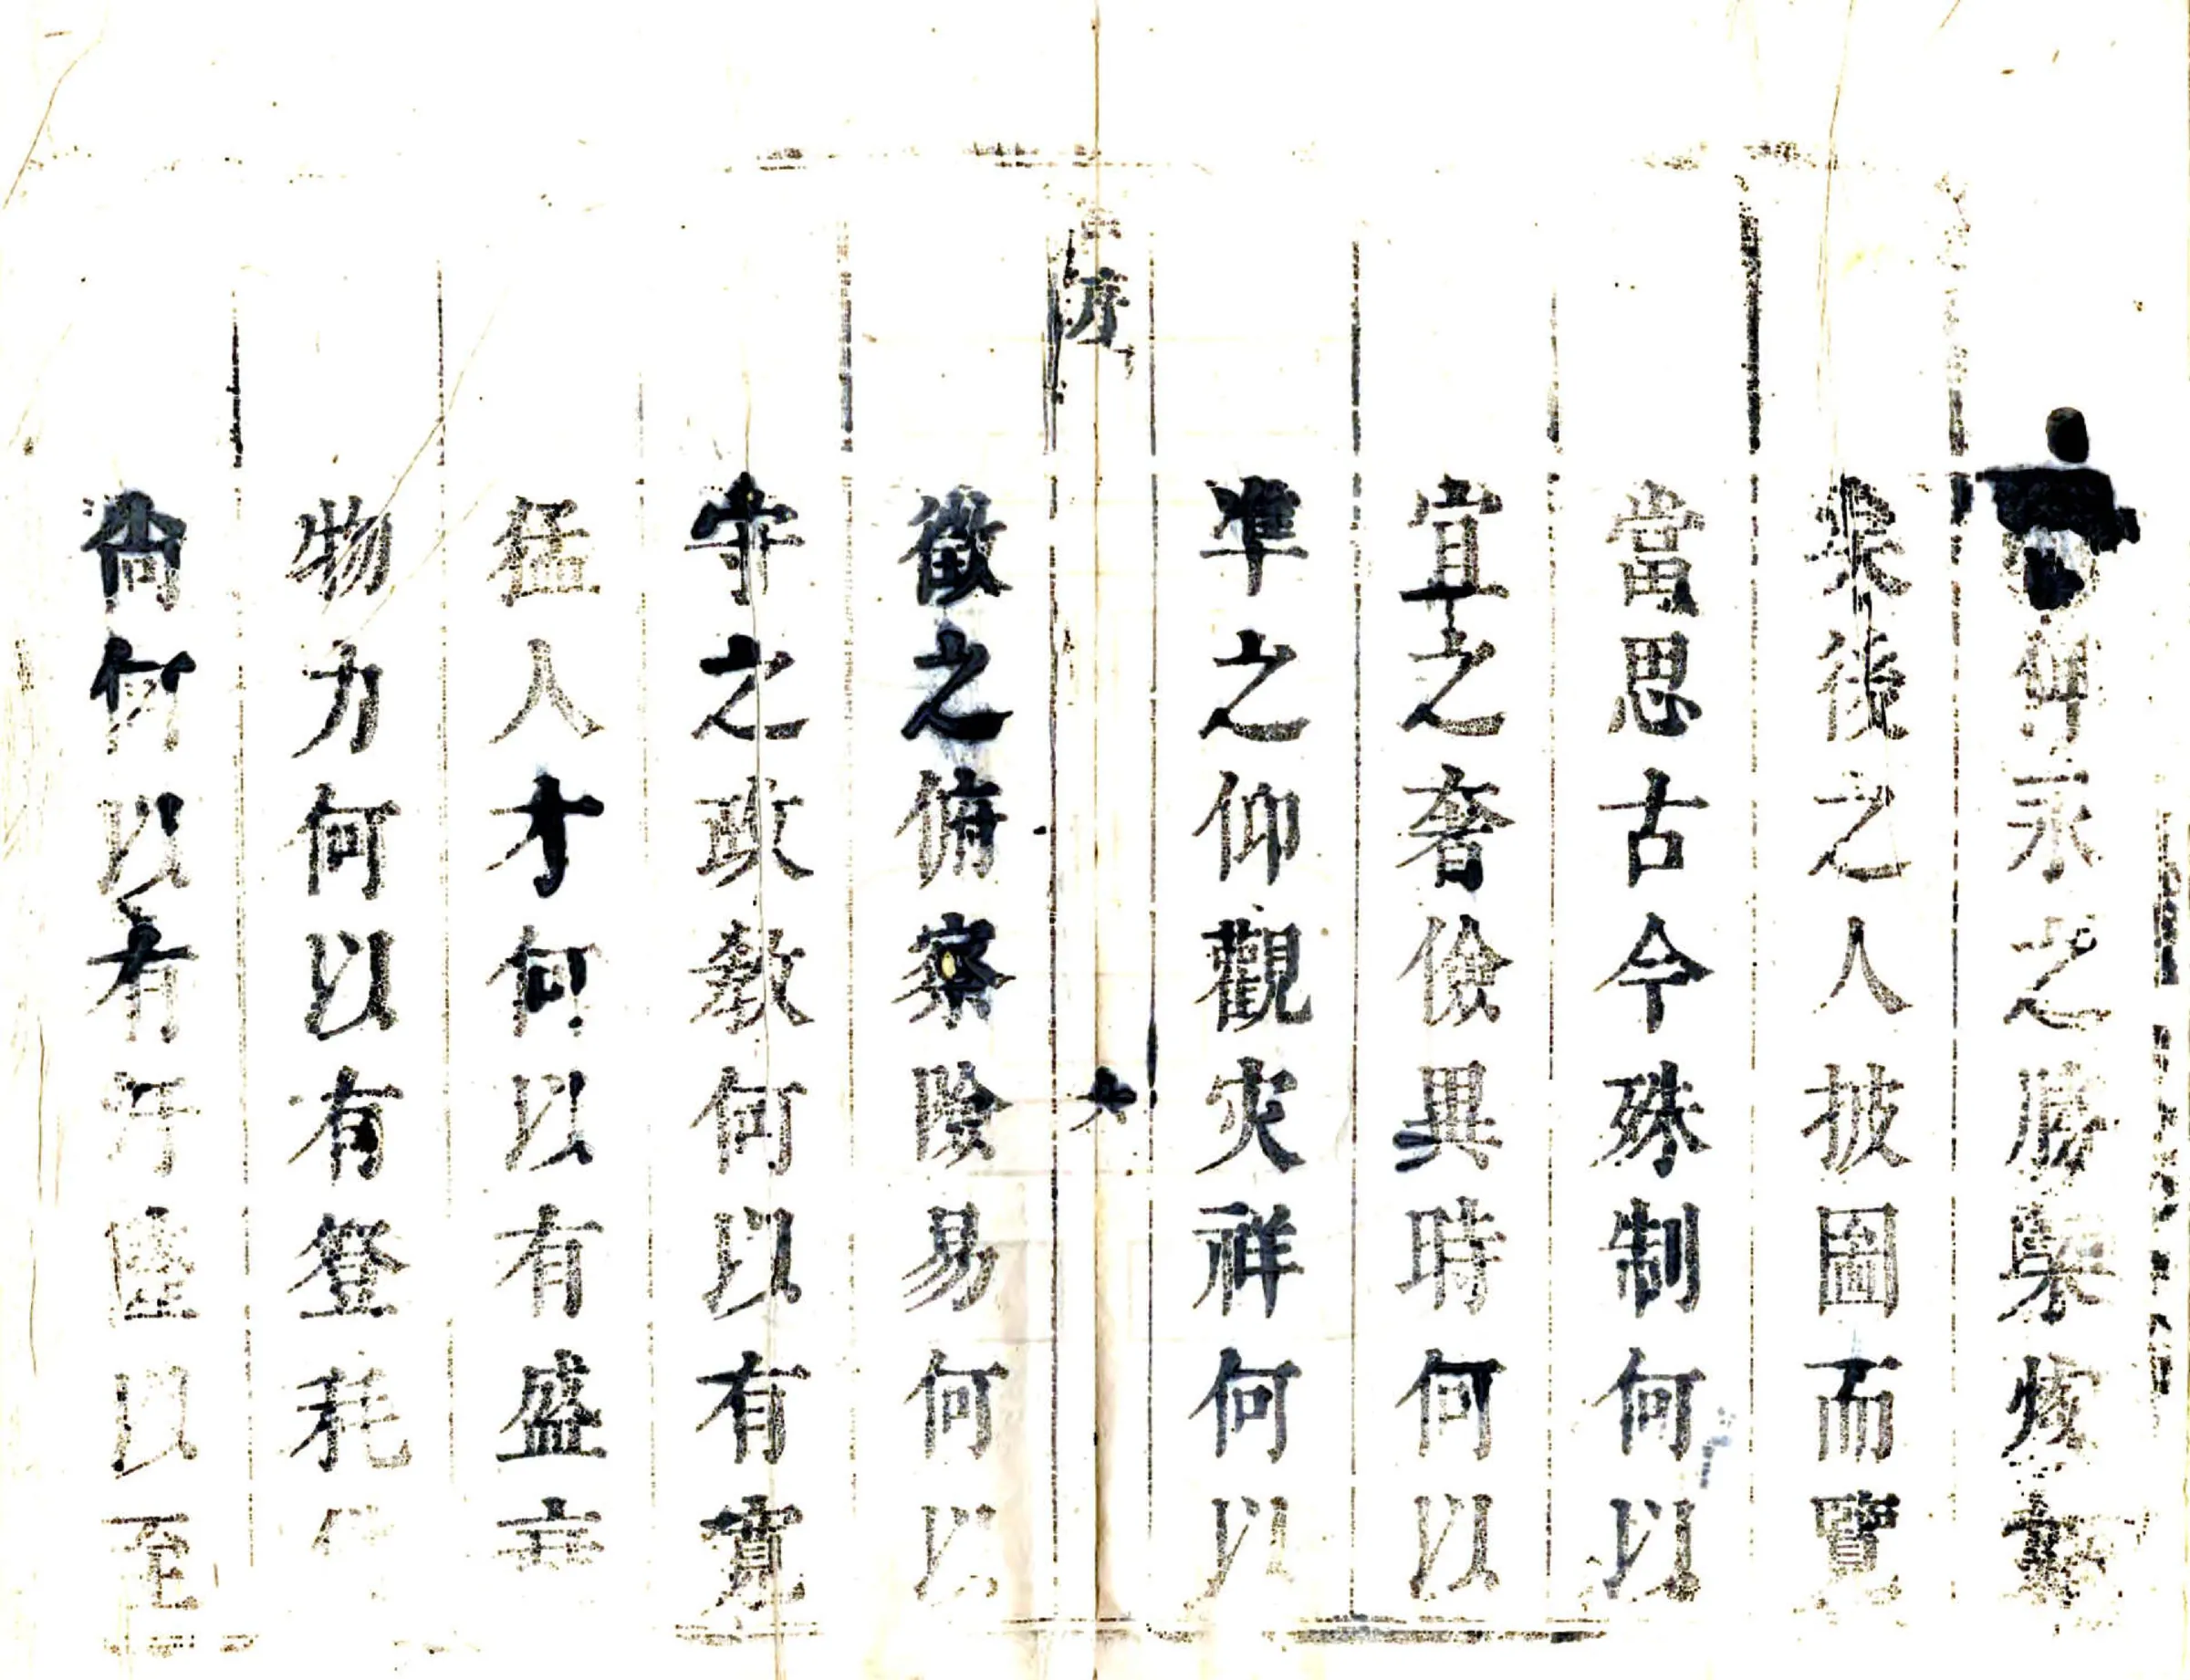 仰永之勝槩
後之人披圖而覽
當思古今殊制何以
宜之奢儉異時何以
準之仰觀灾祥何以
序
六
徵之俯察險易何以
守之政教何以有寬
猛人才何以有盛衰
物力何以有登耗
尚何以有汙隆以至